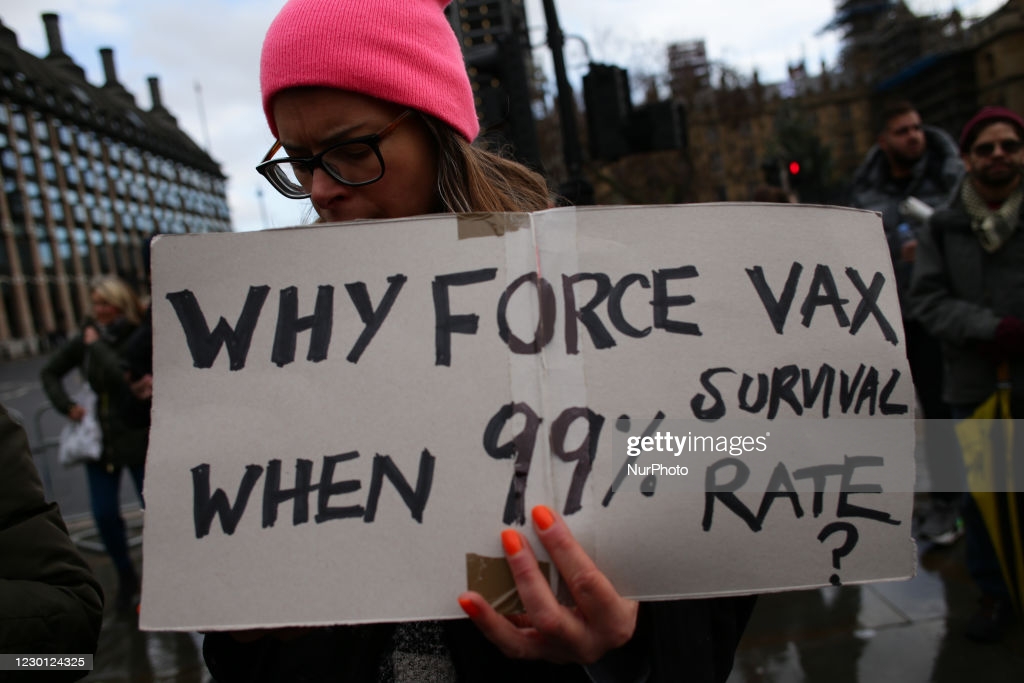 WHY FORCE VAX
WHEN 99% SURVIVAL
RATE
?
gettyimages®
NurPhoto
1230124325